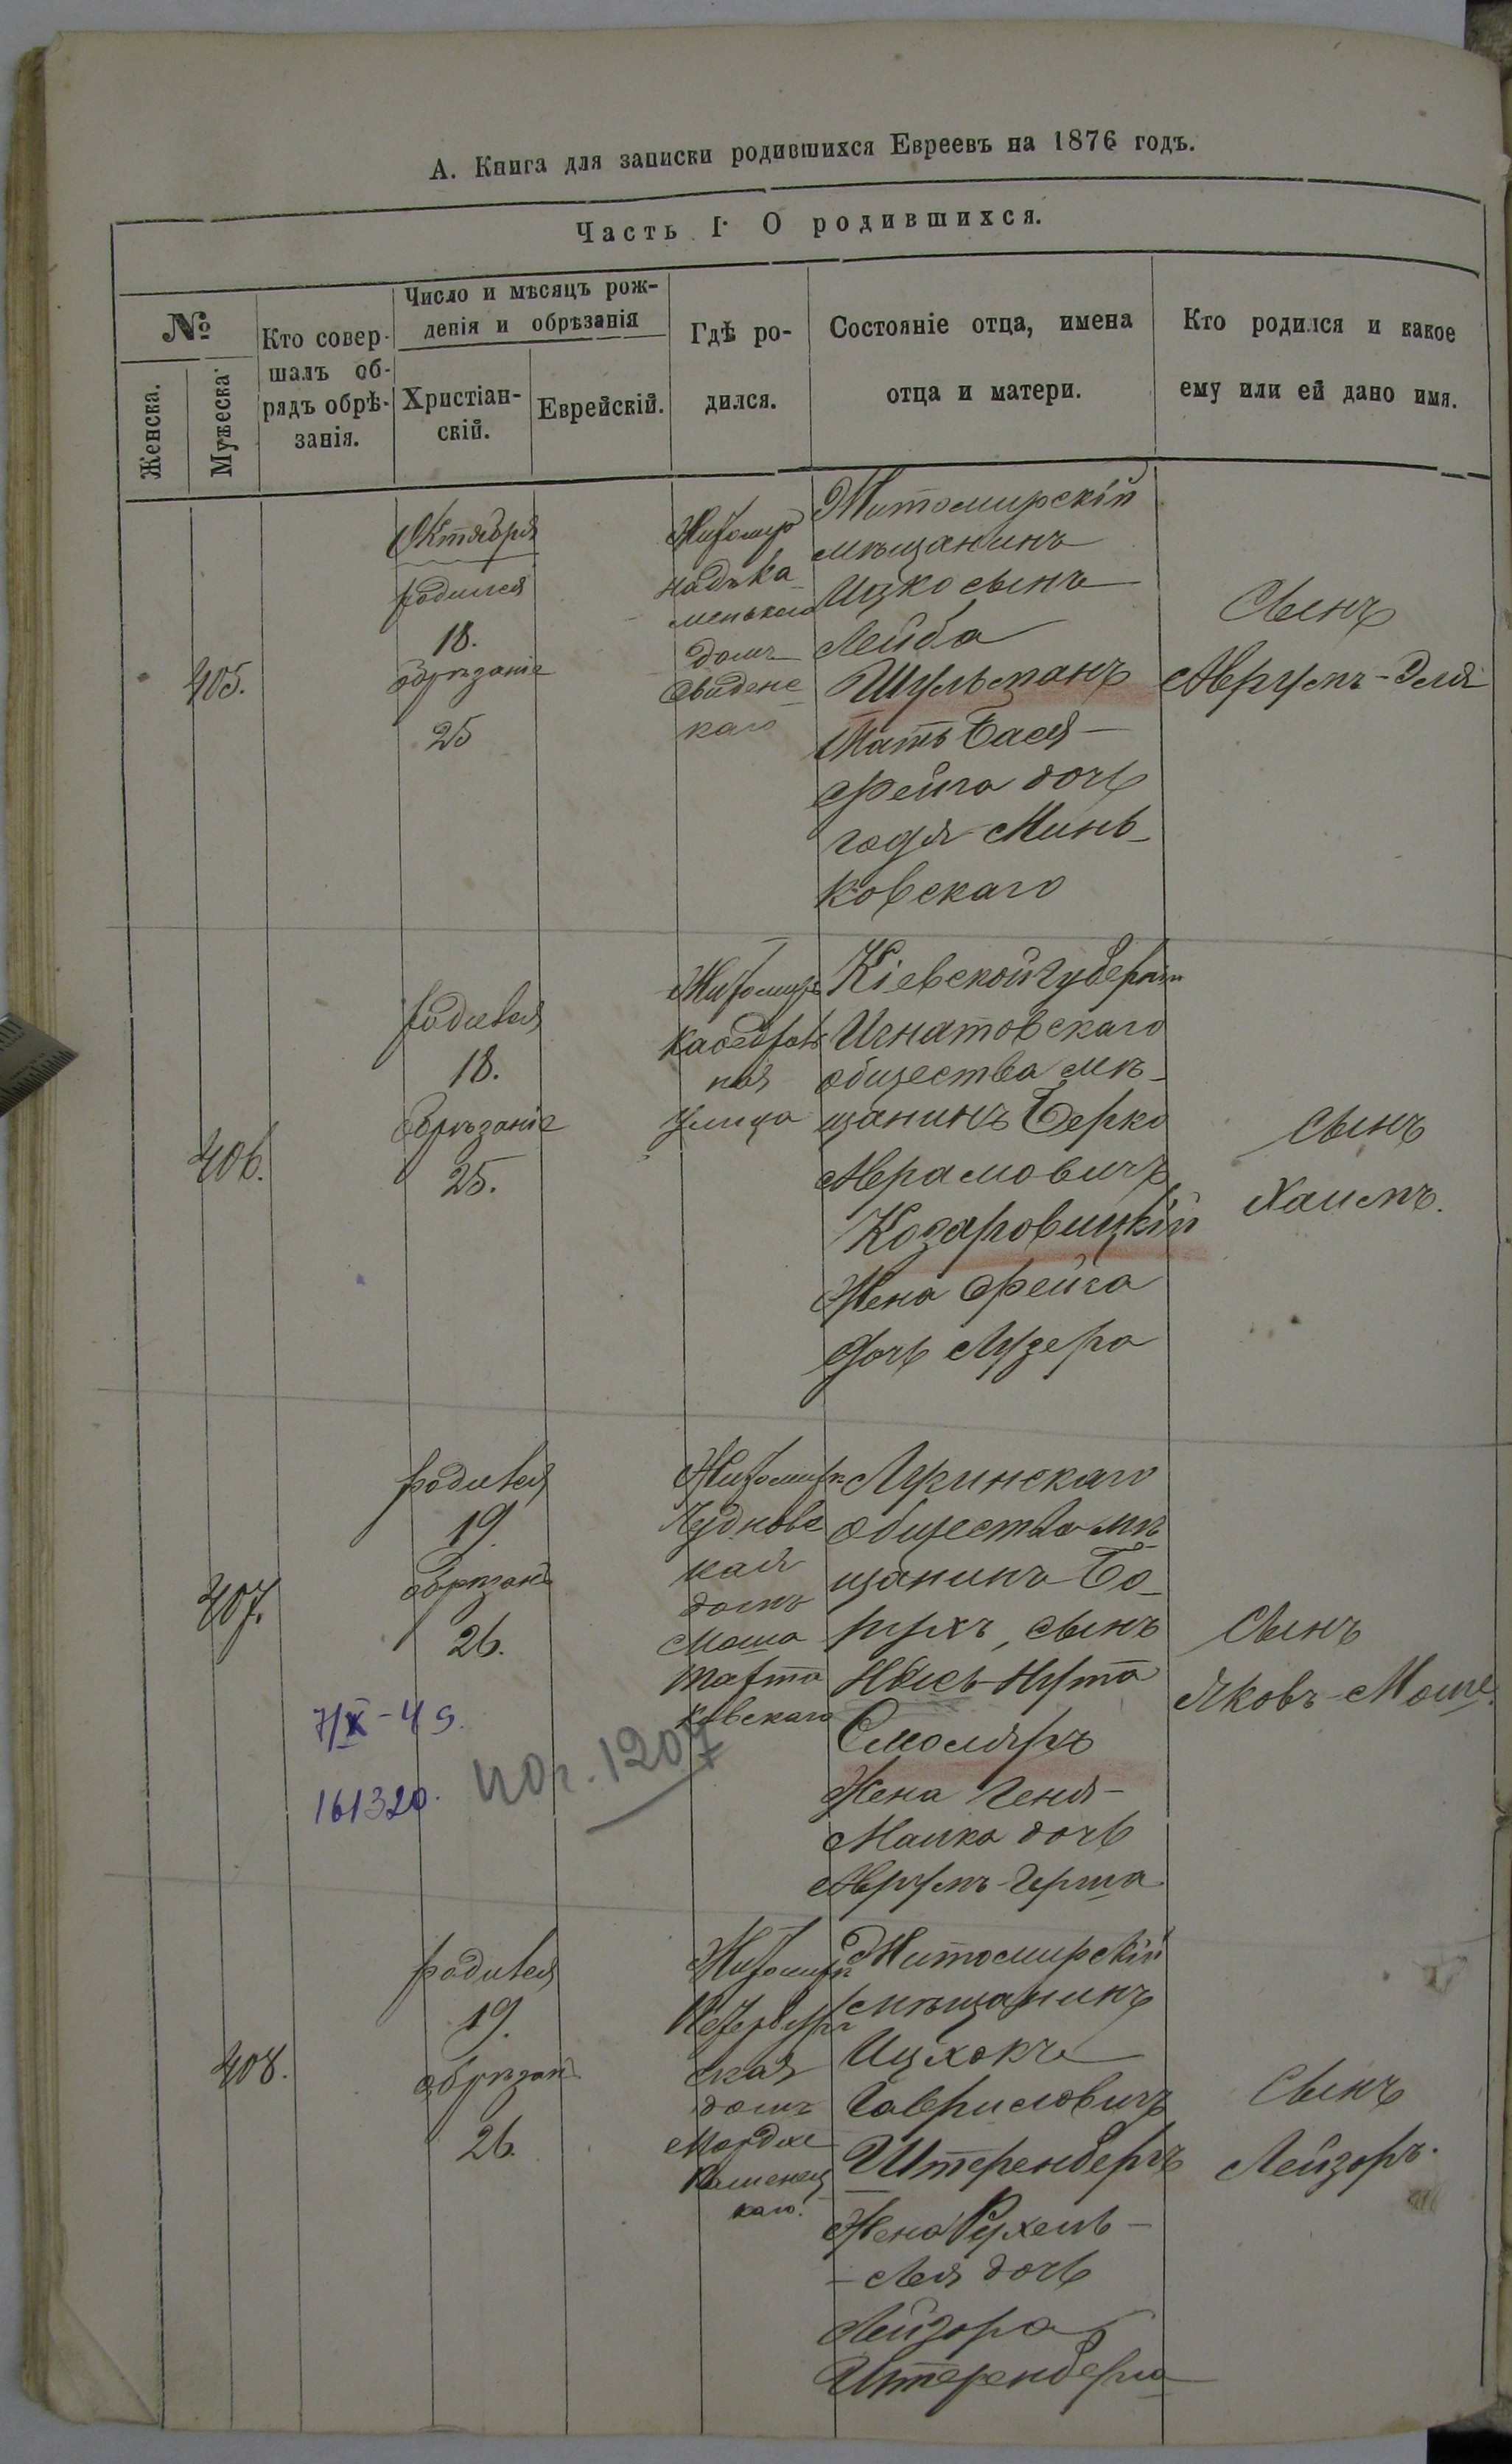 А. Книга для записки родившихся Евреевъ на 1876 годъ.
Часть I. О родившихся.
№
Женска.
Мужеска.
Кто совер-
шалъ об-
рядъ обрѣ-
занія.
Число и мѣсяцъ рож-
денія и обрѣзанія
Христіан-
скій.
Еврейскій.
Гдѣ ро-
дился.
Состояніе отца, имена
отца и матери.
Кто родился и какое
ему или ей дано имя.
405.
Октября
родился
18.
Обрѣзаніе
25
Житомир
надъ Ка-
менькою
домъ
каго
Житомирскій
мѣщанинъ
Ицко сынъ
Лейба
Шульманъ
Мать Бася-
Фейга дочь
Минь-
ковскаго
Сынъ
Аврумъ-Эля
406.
родился
18.
Обрѣзаніе
25.
Житомиръ
Каѳедраль
ная
улица
Кіевской губерніи
Игнатовскаго
общества мѣ-
щанинъ Берко
Аврамовичъ
Козаровицкій
Жена Фейга
дочь Лузера
Сынъ
Хаимъ.
407.
родился
19.
обрѣзан
26.
Житомиръ
Чудновс
кая
домъ
Моша
ковскаго
Лугинскаго
общества мѣ
щанинъ Бо-
рухъ, сынъ
Смоляръ
Жена Геня-
Малка дочь
Аврумъ-Герша
Сынъ
Яковъ-Моше.
7/X-49.
161320.
1207
408.
родился
19.
обрѣзан.
26.
Житомиръ
Петербург
ская
домъ
Мордхе
Каменец
каго.
Житомирскій
мѣщанинъ
Ицхокъ
Гавриловичъ
Штеренбергъ
Жена Рухель-
-Лея дочь
Лейзора
Штеренберга
Сынъ
Лейзоръ.